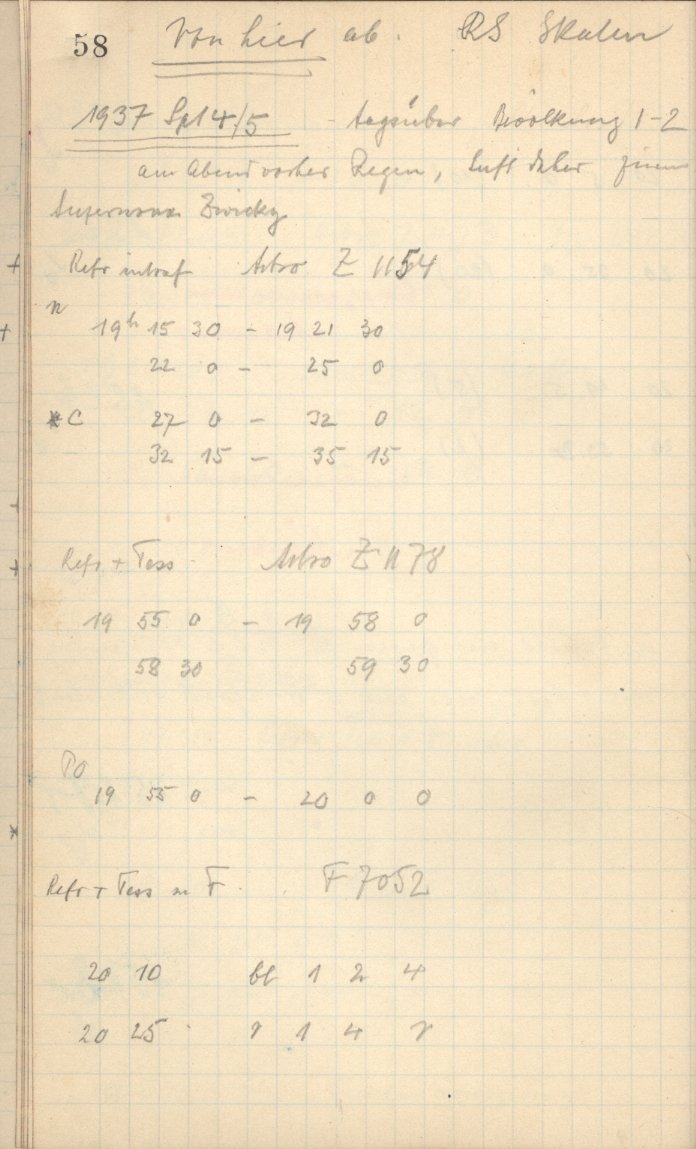 58 Von hier ab. RS Skalen
1937 Spt 4/5 - tagsüber Bewölkung 1-2
am Abend vorher Regen, Luft daher
Supernova Zwicky
+ Refr intraf Astro Z 1154
n
+ 19h 15 30 - 19 21 30
22 0 - 25 0
C 27 0 - 32 0
32 15 - 35 15
+
+ Refr + Tess Astro Z 1178
19 55 0 - 19 58 0
58 30 59 30
TO
19 55 0 - 20 0 0
*
Refr + Tess m F. F 7052
20 10 bl 1 2 4
20 25 r 1 4